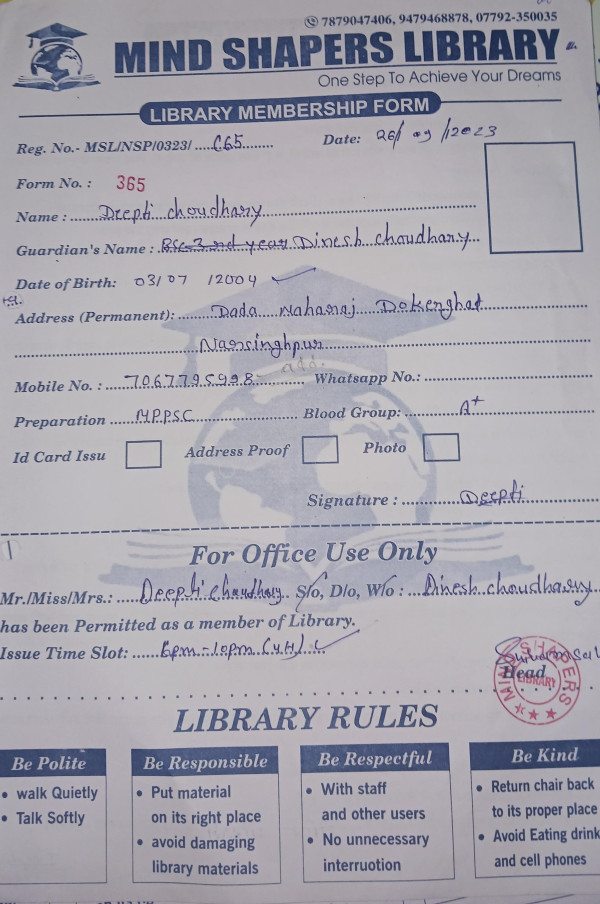 7879047406, 9479468878, 07792-350035
MIND SHAPERS LIBRARY
One Step To Achieve Your Dreams
LIBRARY MEMBERSHIP FORM
Reg. No.- MSL/NSP/0323/ ....C65........ Date: 26/ 09 /2023
Form No. : 365
Name : Deepti choudhary
Guardian's Name : Dinesh choudhary
Date of Birth: 03/07 /2004
Address (Permanent): Dada Maharaj Dokerghat
Narsinghpur
Mobile No. : 7067795998 Whatsapp No.:
Preparation MPPSC Blood Group: A+
Id Card Issu Address Proof Photo
Signature : Deepti
For Office Use Only
Mr./Miss/Mrs.: Deepti choudhary S/o, D/o, W/o : Dinesh choudhary
has been Permitted as a member of Library.
Issue Time Slot: 6pm-10pm (4H)
Head
MIND SHAPERS
LIBRARY
LIBRARY RULES
Be Polite
• walk Quietly
• Talk Softly
Be Responsible
• Put material
on its right place
• avoid damaging
library materials
Be Respectful
• With staff
and other users
• No unnecessary
interruotion
Be Kind
• Return chair back
to its proper place
• Avoid Eating drink
and cell phones